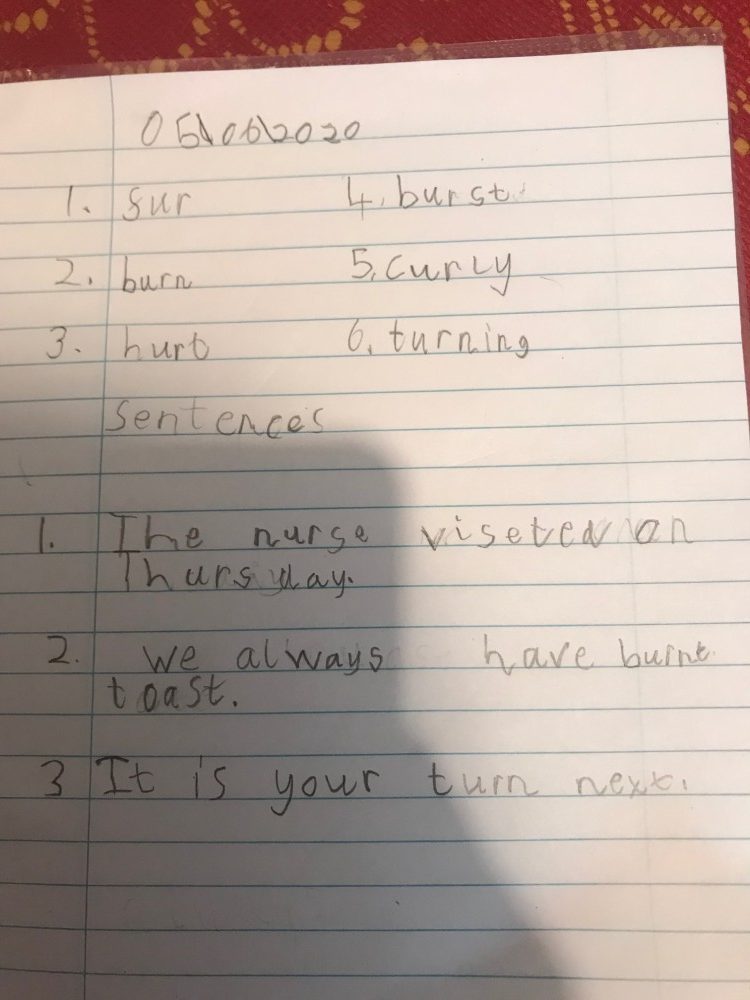 05\06\2020
1. sur 4. burst
2. burn 5. curly
3. hurt 6. turning
Sentences
1. The nurse viseted on
Thursday.
2. We always have burnt
toast.
3 It is your turn next.